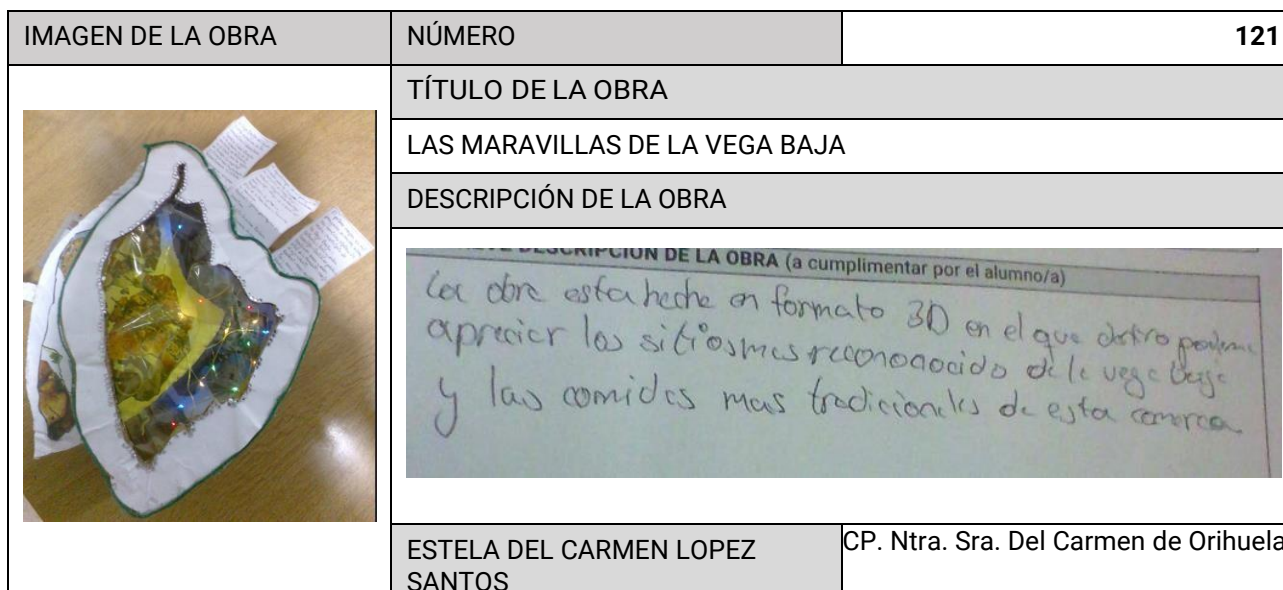 IMAGEN DE LA OBRA
NÚMERO
121
TÍTULO DE LA OBRA
LAS MARAVILLAS DE LA VEGA BAJA
DESCRIPCIÓN DE LA OBRA
DESCRIPCIÓN DE LA OBRA (a cumplimentar por el alumno/a)
La obra esta heche en formato 3D en el que dentro podemos
apreciar los sitios mas reconocido de la vega baja
y las comidas mas tradicionales de esta comarca
ESTELA DEL CARMEN LOPEZ
SANTOS
CP. Ntra. Sra. Del Carmen de Orihuela